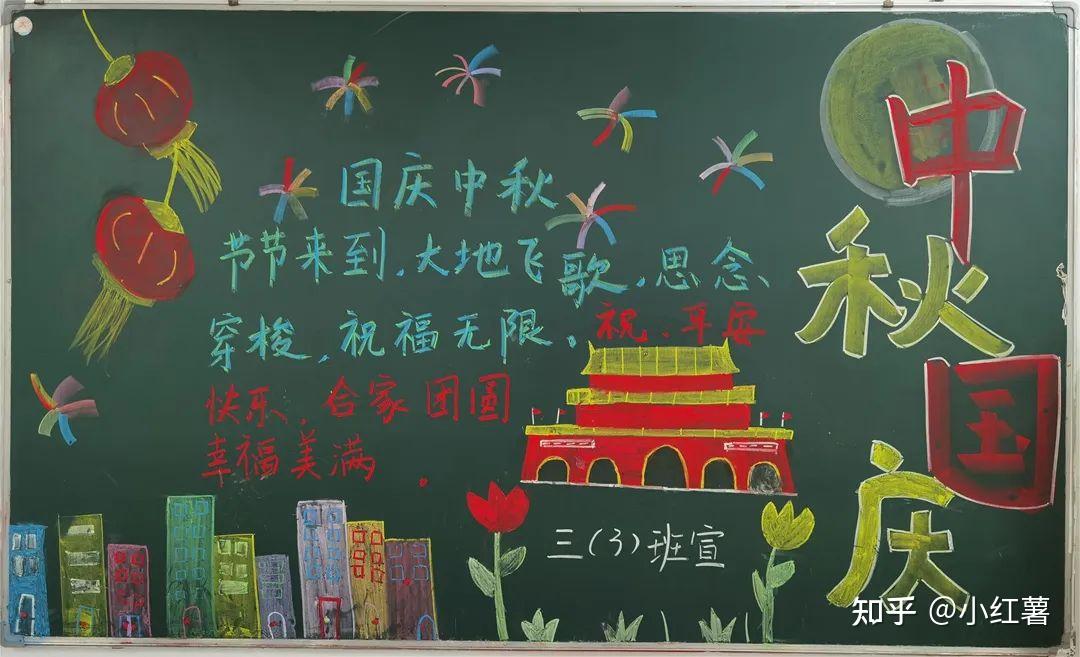 国庆中秋
节节来到，大地飞歌，思念、
穿梭，祝福无限。祝，平安
快乐，合家团圆
幸福美满．
三(3)班宣
中秋国庆
知乎 @小红薯